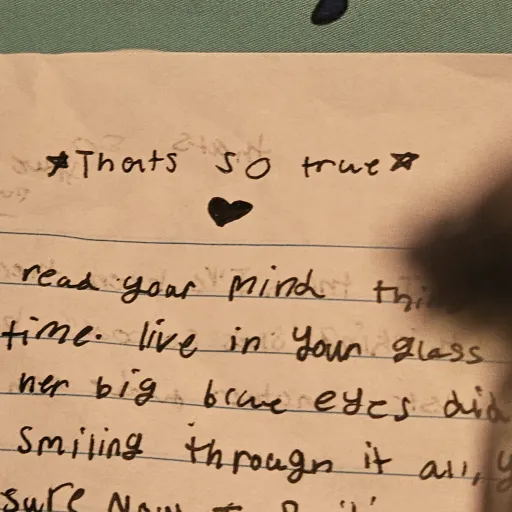 ★Thats so true★
read your mind
time. live in your glass
her big blue eyes did
smiling through it all,
sure Now